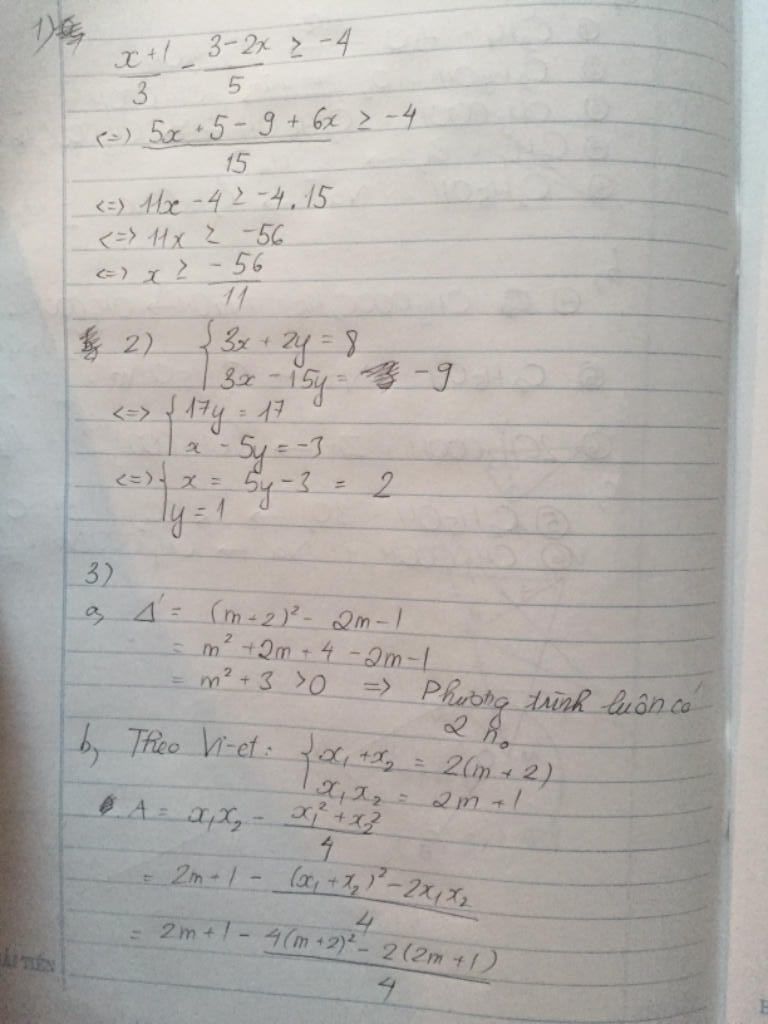 1)
x+1/3 - 3-2x/5 ≥ -4
<=> 5x + 5 - 9 + 6x/15 ≥ -4
<=> 11x - 4 ≥ -4.15
<=> 11x ≥ -56
<=> x ≥ -56/11
2) { 3x + 2y = 8
3x - 15y = -9
<=> { 17y = 17
x - 5y = -3
<=> { x = 5y - 3 = 2
y = 1
3)
a, Δ' = (m+2)² - 2m - 1
= m² + 2m + 4 - 2m - 1
= m² + 3 > 0 => Phương trình luôn có
2 n₀
b, Theo Vi-et: { x₁ + x₂ = 2(m+2)
x₁x₂ = 2m + 1
A = x₁x₂ - x₁² + x₂²/4
= 2m + 1 - (x₁ + x₂)² - 2x₁x₂/4
= 2m + 1 - 4(m+2)² - 2(2m+1)/4